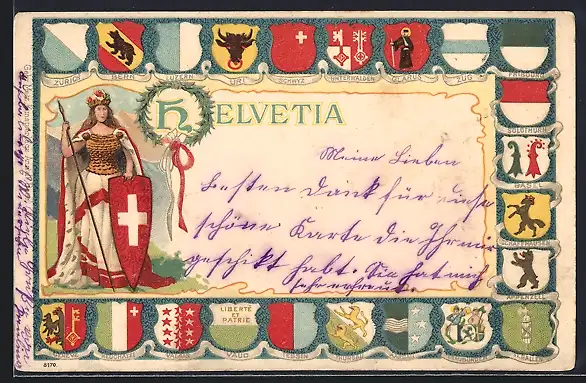 ZÜRICH
BERN
LUZERN
URI
SCHWYZ
UNTERWALDEN
GLARUS
ZUG
FRIBOURG
HELVETIA
SOLOTHURN
Meine Lieben
BASEL
besten Dank für diese
schöne Karte die Ihr mir
SCHAFFHAUSEN
geschikt habt. Sie hat mich
sehr erfreut.
APPENZELL
LIBERTÉ
ET
PATRIE
GENÈVE
NEUCHÂTEL
VALAIS
VAUD
TESSIN
THURGAU
AARGAU
GRAUBÜNDEN
ST. GALLEN
5170